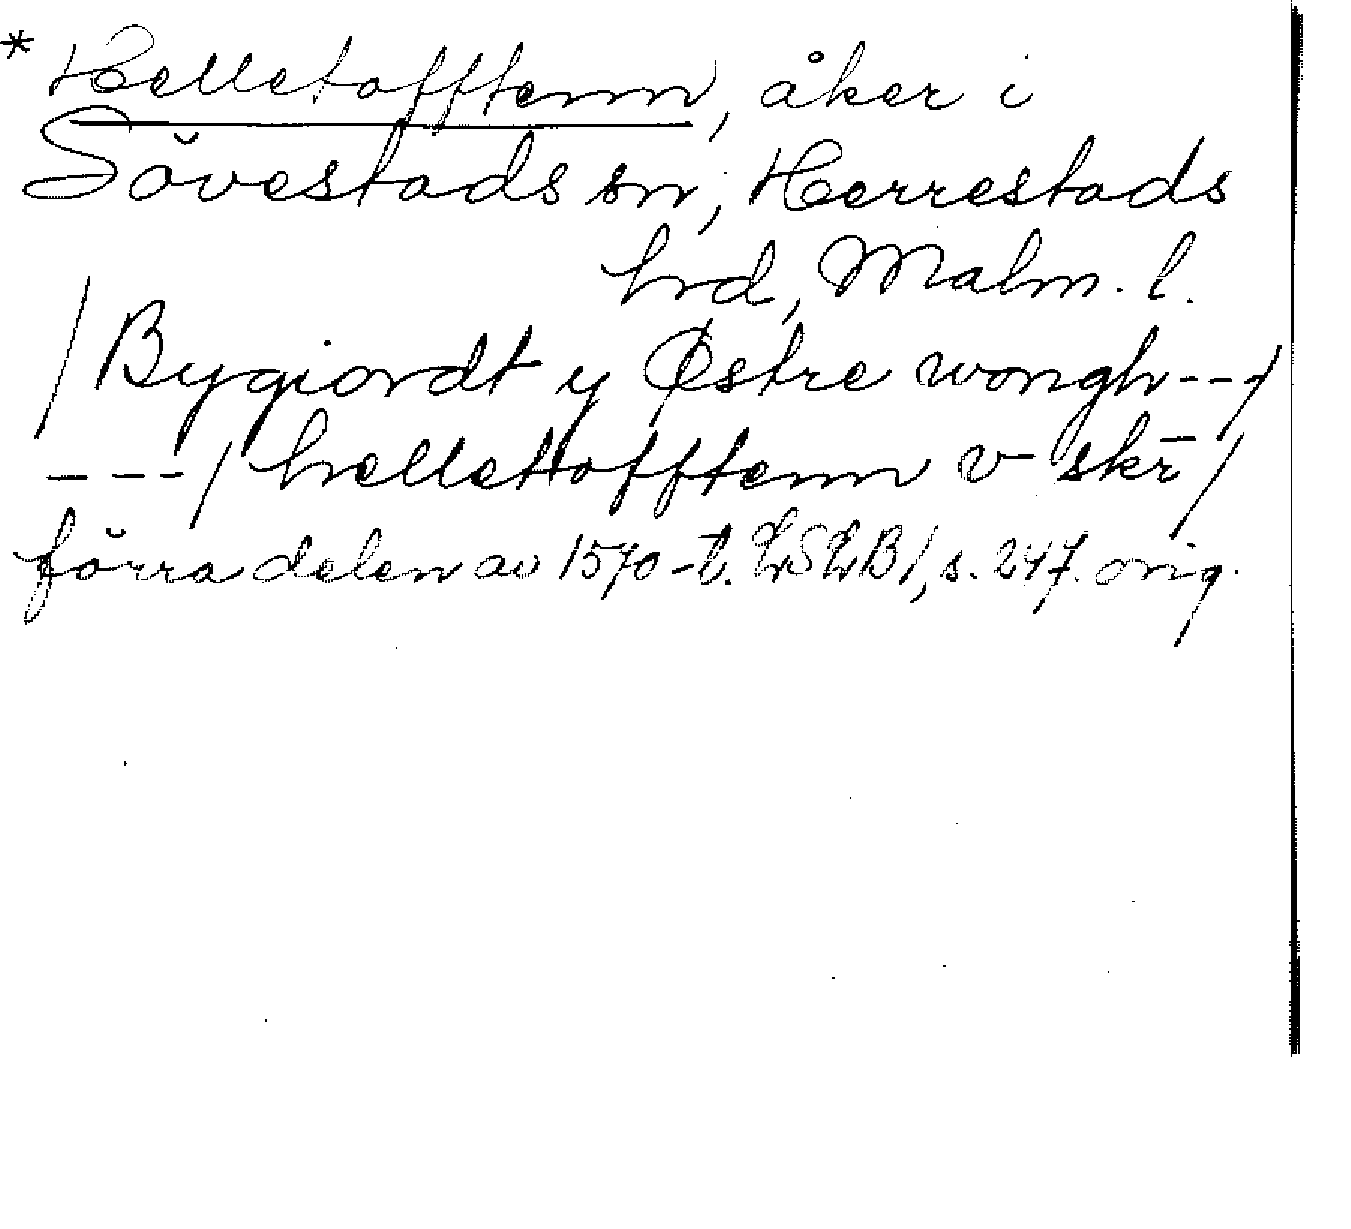 * Helletofftenn, åker i
Sövestads sn, Herrestads
hrd, Malm. l.
/Bygiordt y Østre wongh---/
---/ helletofftenn v skr̄/
förra delen av 1570-t. LSLB1, s. 247. orig.